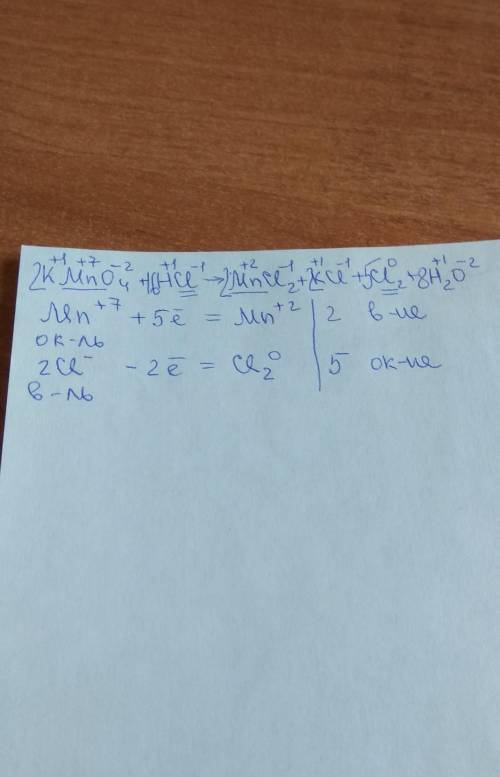 2K⁺¹Mn⁺⁷O₄⁻² + 16H⁺¹Cl⁻¹ → 2Mn⁺²Cl₂⁻¹ + 2K⁺¹Cl⁻¹ + 5Cl₂⁰ + 8H₂⁺¹O⁻²
Mn⁺⁷ + 5ē = Mn⁺² | 2 в-ие
ок-ль
2Cl⁻ - 2ē = Cl₂⁰ | 5 ок-ие
в-ль